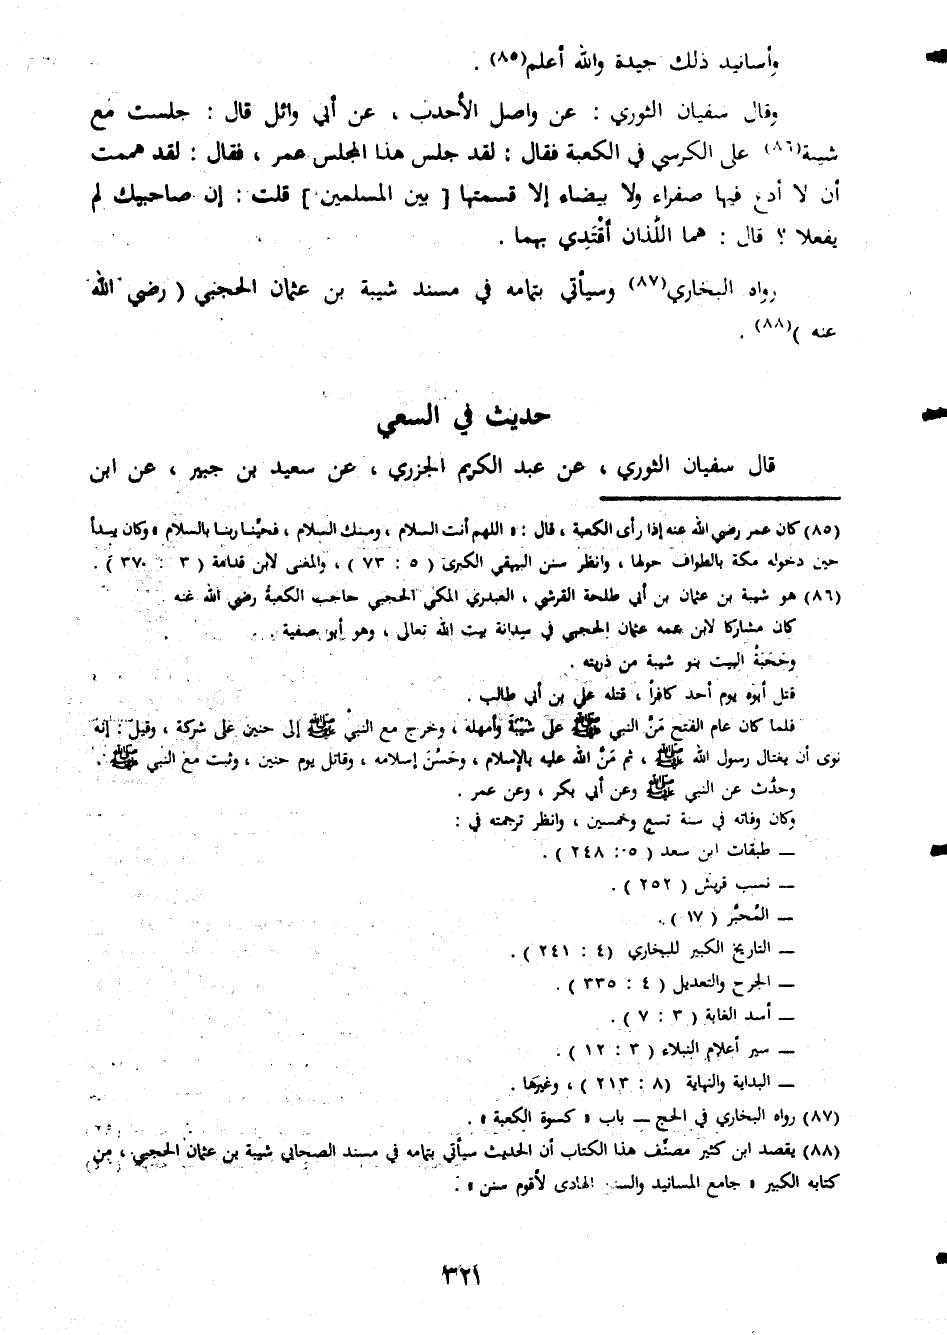 وأسانيد ذلك جيدة والله أعلم(٨٥) .
وقال سفيان الثوري : عن واصل الأحدب ، عن أبي وائل قال : جلست مع
شيبة(٨٦) على الكرسي في الكعبة فقال : لقد جلس هذا المجلس عمر ، فقال : لقد هممت
أن لا أدع فيها صفراء ولا بيضاء إلا قسمتها [ بين المسلمين ] قلت : إن صاحبيك لم
يفعلا ؟ قال : هما اللّذان أقْتَدِي بهما .
رواه البخاري(٨٧) وسيأتي بتمامه في مسند شيبة بن عثمان الحجبي ( رضي الله
عنه )(٨٨) .
حديث في السعي
قال سفيان الثوري ، عن عبد الكريم الجزري ، عن سعيد بن جبير ، عن ابن
(٨٥) كان عمر رضي الله عنه إذا رأى الكعبة ، قال : « اللهم أنت السلام ، ومنك السلام ، فحيِّنا ربنا بالسلام » وكان يبدأ
حين دخوله مكة بالطواف حولها ، وانظر سنن البيهقي الكبرى ( ٥ : ٧٣ ) ، والمغنى لابن قدامة ( ٣ : ٣٧٠ ) .
(٨٦) هو شيبة بن عثمان بن أبي طلحة القرشي ، العبدري المكي الحجبي حاجب الكعبة رضي الله عنه .
كان مشاركا لابن عمه عثمان الحجبي في سدانة بيت الله تعالى ، وهو أبو صفية .
وحَجَبَةُ البيت بنو شيبة من ذريته .
قتل أبوه يوم أحد كافراً ، قتله علي بن أبي طالب .
فلما كان عام الفتح مَنَّ النبي ﷺ على شَيْبَةَ وأمهله ، وخرج مع النبي ﷺ إلى حنين على شركة ، وقيل : إنه
نوى أن يغتال رسول الله ﷺ ، ثم مَنَّ الله عليه بالإسلام ، وحَسُنَ إسلامه ، وقاتل يوم حنين ، وثبت مع النبي ﷺ .
وحدَّث عن النبي ﷺ وعن أبي بكر ، وعن عمر .
وكان وفاته في سنة تسع وخمسين ، وانظر ترجمته في :
— طبقات ابن سعد ( ٥ : ٢٤٨ ) .
— نسب قريش ( ٢٥٢ ) .
— المُحبَّر ( ١٧ ) .
— التاريخ الكبير للبخاري ( ٤ : ٢٤١ ) .
— الجرح والتعديل ( ٤ : ٣٣٥ ) .
— أسد الغابة ( ٣ : ٧ ) .
— سير أعلام النبلاء ( ٣ : ١٢ ) .
— البداية والنهاية ( ٨ : ٢١٣ ) ، وغيرها .
(٨٧) رواه البخاري في الحج — باب « كسوة الكعبة » .
(٨٨) يقصد ابن كثير مصنِّف هذا الكتاب أن الحديث سيأتي بتمامه في مسند الصحابي شيبة بن عثمان الحجبي ، من
كتابه الكبير « جامع المسانيد والسنن الهادى لأقوم سنن » .
٣٢١